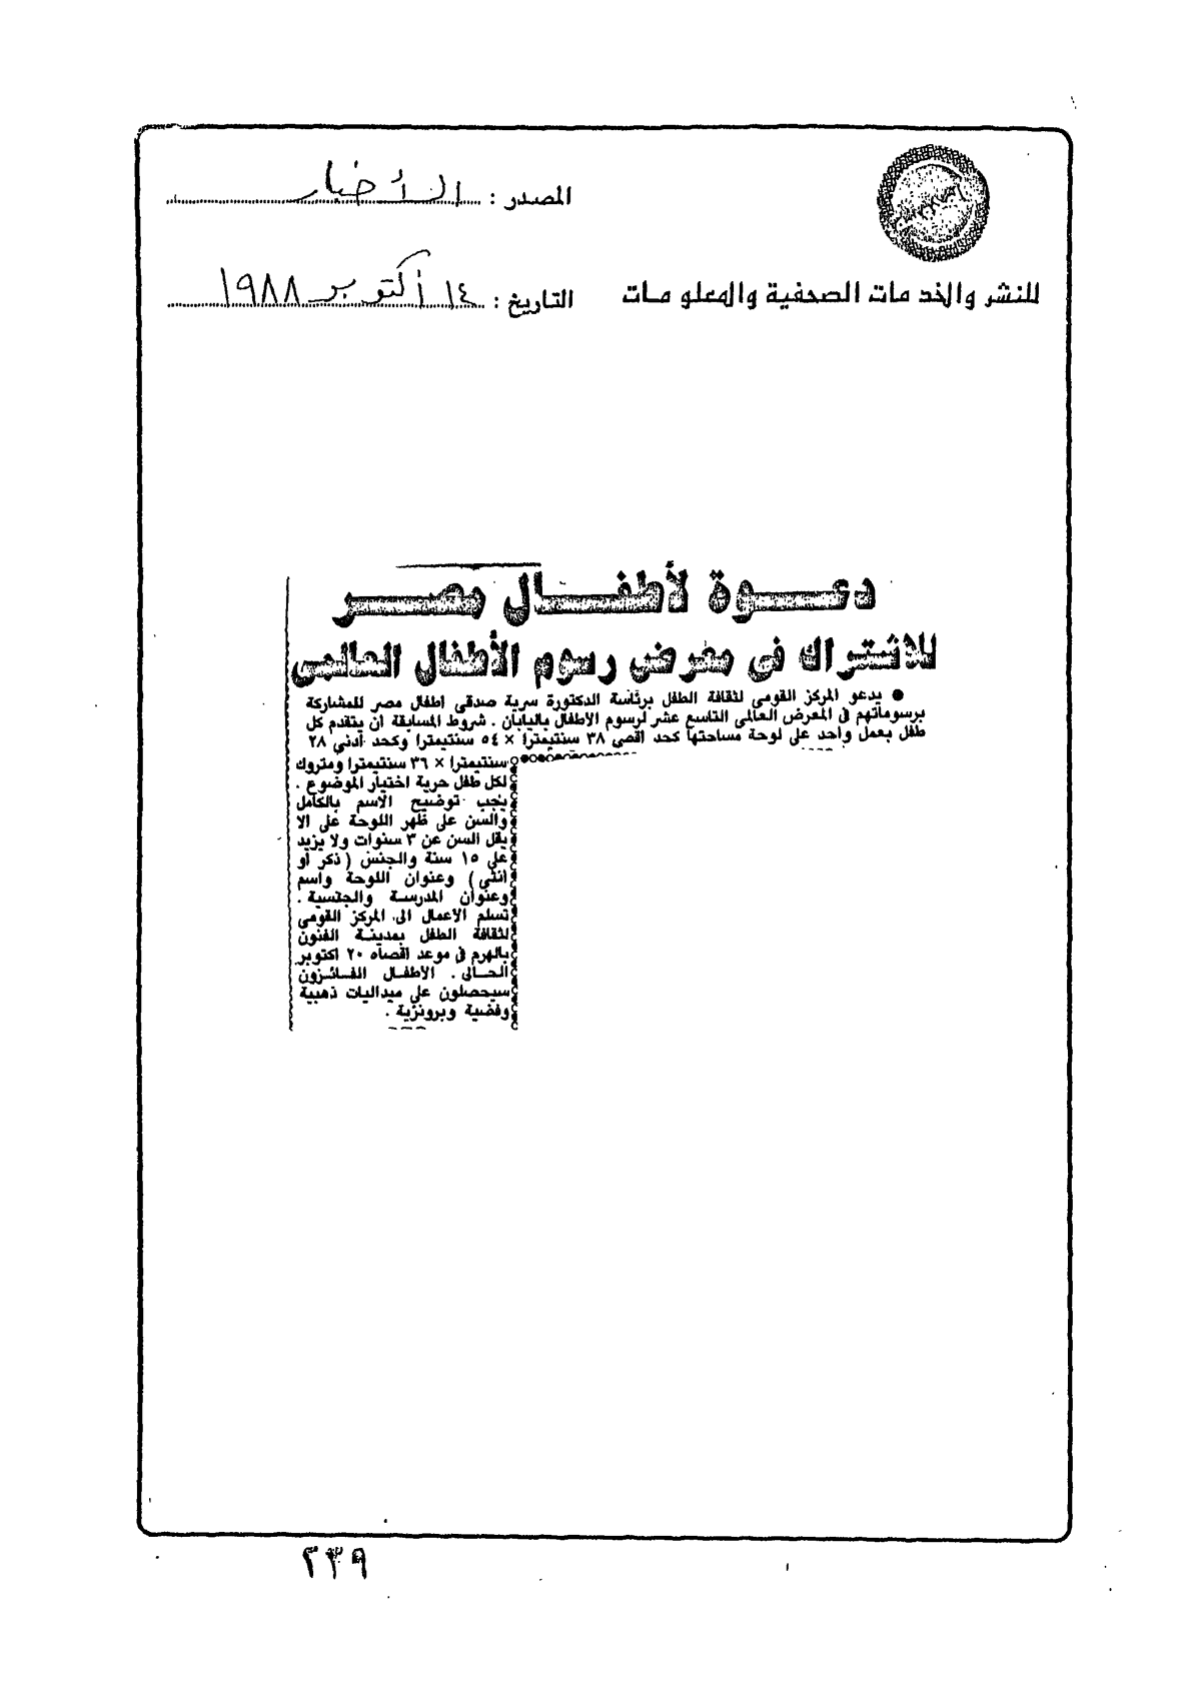 المصدر : الأخبار
للنشر والخدمات الصحفية والمعلومات
التاريخ : ١٤ أكتوبر ١٩٨٨
دعوة لأطفال مصر
للاشتراك فى معرض رسوم الأطفال العالمى
● يدعو المركز القومى لثقافة الطفل برئاسة الدكتورة سرية صدقى اطفال مصر للمشاركة
برسوماتهم فى المعرض العالمى التاسع عشر لرسوم الاطفال باليابان . شروط المسابقة ان يتقدم كل
طفل بعمل واحد على لوحة مساحتها كحد اقصى ٣٨ سنتيمترا × ٥٤ سنتيمترا وكحد أدنى ٢٨
سنتيمترا × ٣٦ سنتيمترا ومتروك
لكل طفل حرية اختيار الموضوع .
يجب توضيح الاسم بالكامل
والسن على ظهر اللوحة على الا
يقل السن عن ٣ سنوات ولا يزيد
على ١٥ سنة والجنس ( ذكر أو
انثى ) وعنوان اللوحة واسم
وعنوان المدرسة والجنسية .
تسلم الاعمال الى المركز القومى
لثقافة الطفل بمدينة الفنون
بالهرم فى موعد اقصاه ٢٠ اكتوبر
الحالى . الأطفال الفائزون
سيحصلون على ميداليات ذهبية
وفضية وبرونزية .
٢٣٩